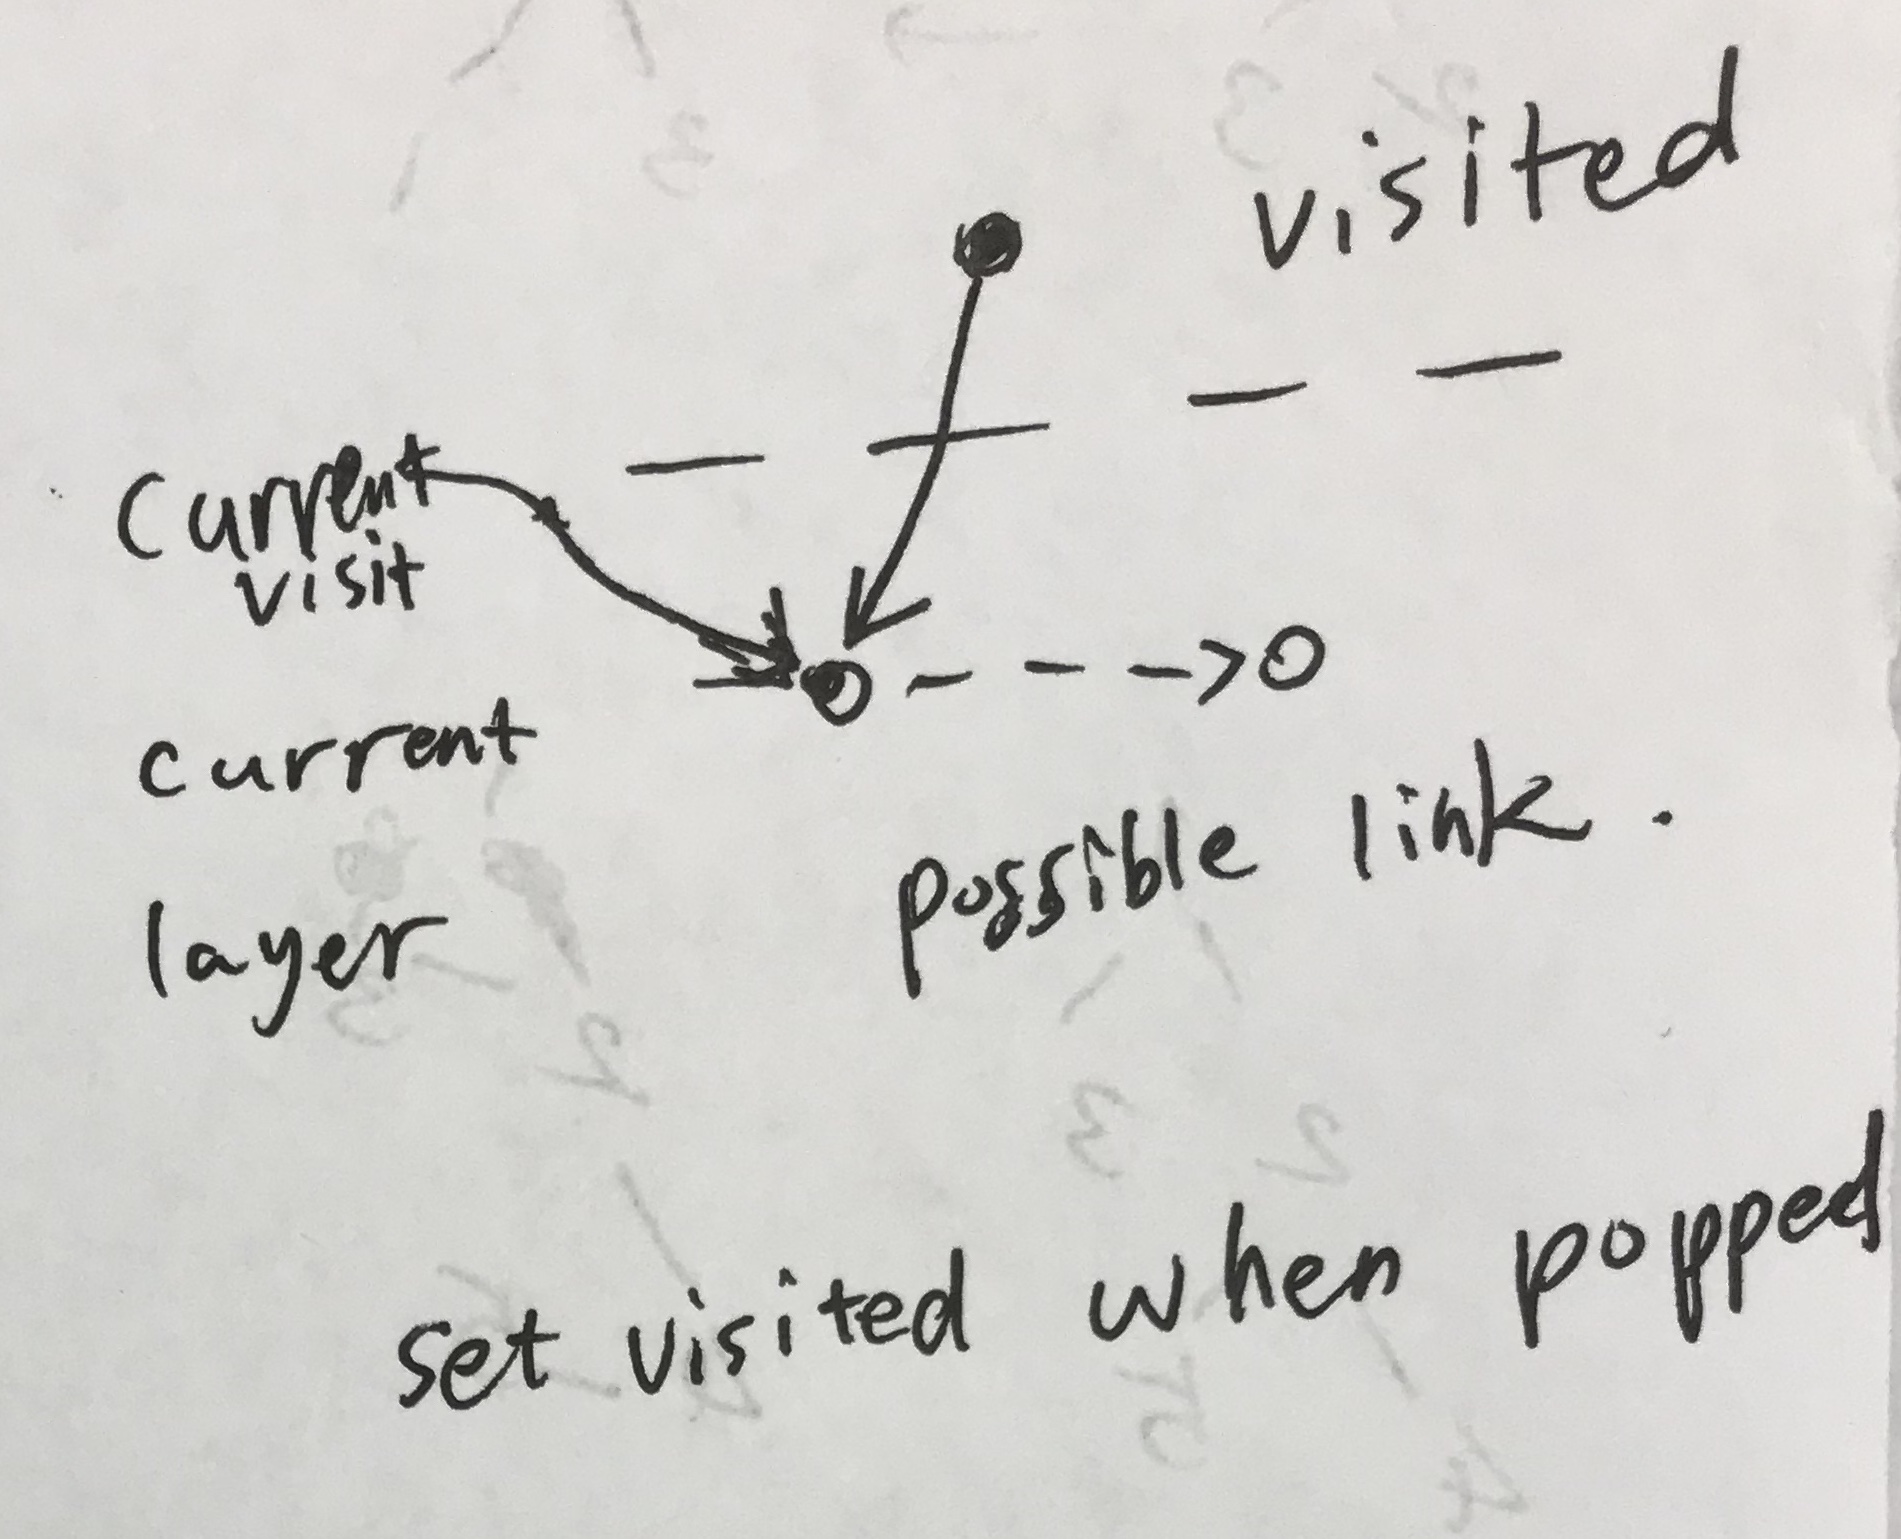 visited
current
visit
current
layer
possible link.
set visited when popped